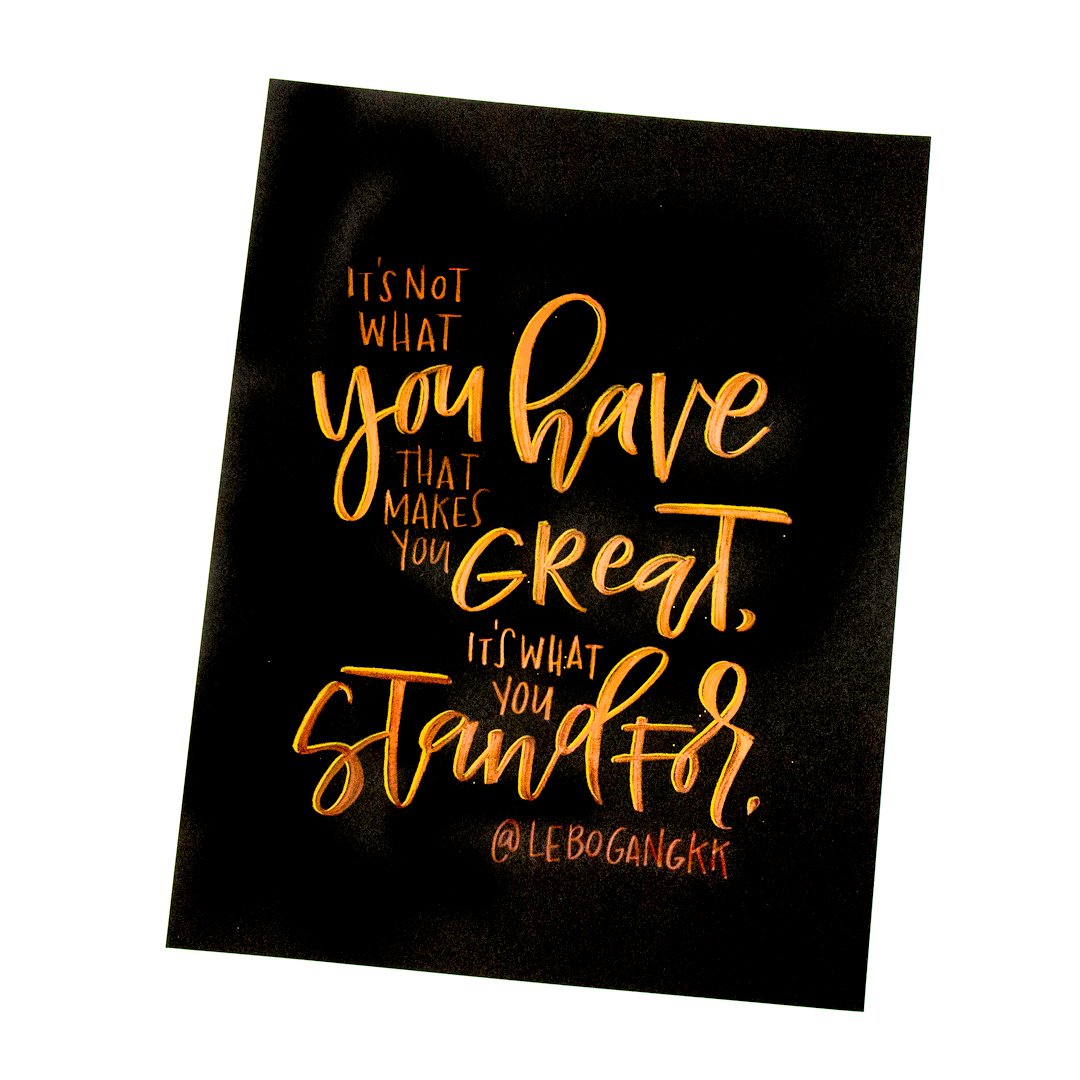 IT'S NOT
WHAT
you have
THAT
MAKES
YOU GReaT,
IT'S WHAT
YOU
STand FoR.
@LEBOGANGKK